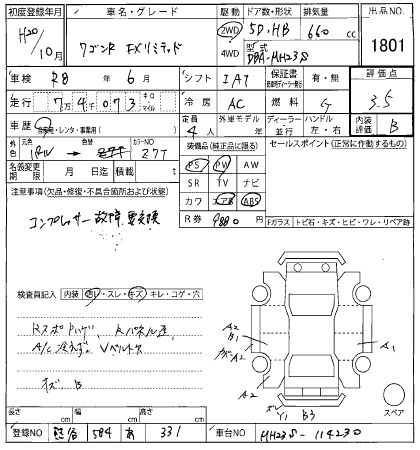 初度登録年月 車名・グレード 駆動 ドア数・形状 排気量 出品NO.
H20 / 10月 ワゴンR FXリミテッド 2WD 4WD 5D.HB 660 cc 1801
型式 DBA-MH23S
車検 R8 年 6 月 シフト IAT 保証書 有・無 評価点 3.5
走行 7万4千073 キロ マイル 冷房 AC 燃料 G
車歴 自家用・レンタ・事業用 定員 4人 外車モデル 年 ディーラー 並行 ハンドル 左・右 内装評価 B
外色 元色 パール 色替 カラーNO Z7T
装備品(純正品に限る) セールスポイント(正常に作動するもの)
名義変更期限 月 日迄 積載 t
PS PW AW
SR TV ナビ
カワ エアB ABS
R券 9880 円
注意事項(欠品・修復・不具合箇所および状態)
コンプレッサー故障 要交換
Fガラス トビ石・キズ・ヒビ・ワレ・リペア跡
検査員記入 内装 汚レ・スレ・キズ・キレ・コゲ・穴
A/C冷えず Vベルト
A2
B1
A2
A2
A1
Y1 B3
スペア
長さ cm 幅 cm 高さ cm
登録NO 584 あ 331 車台NO MH23S-114230